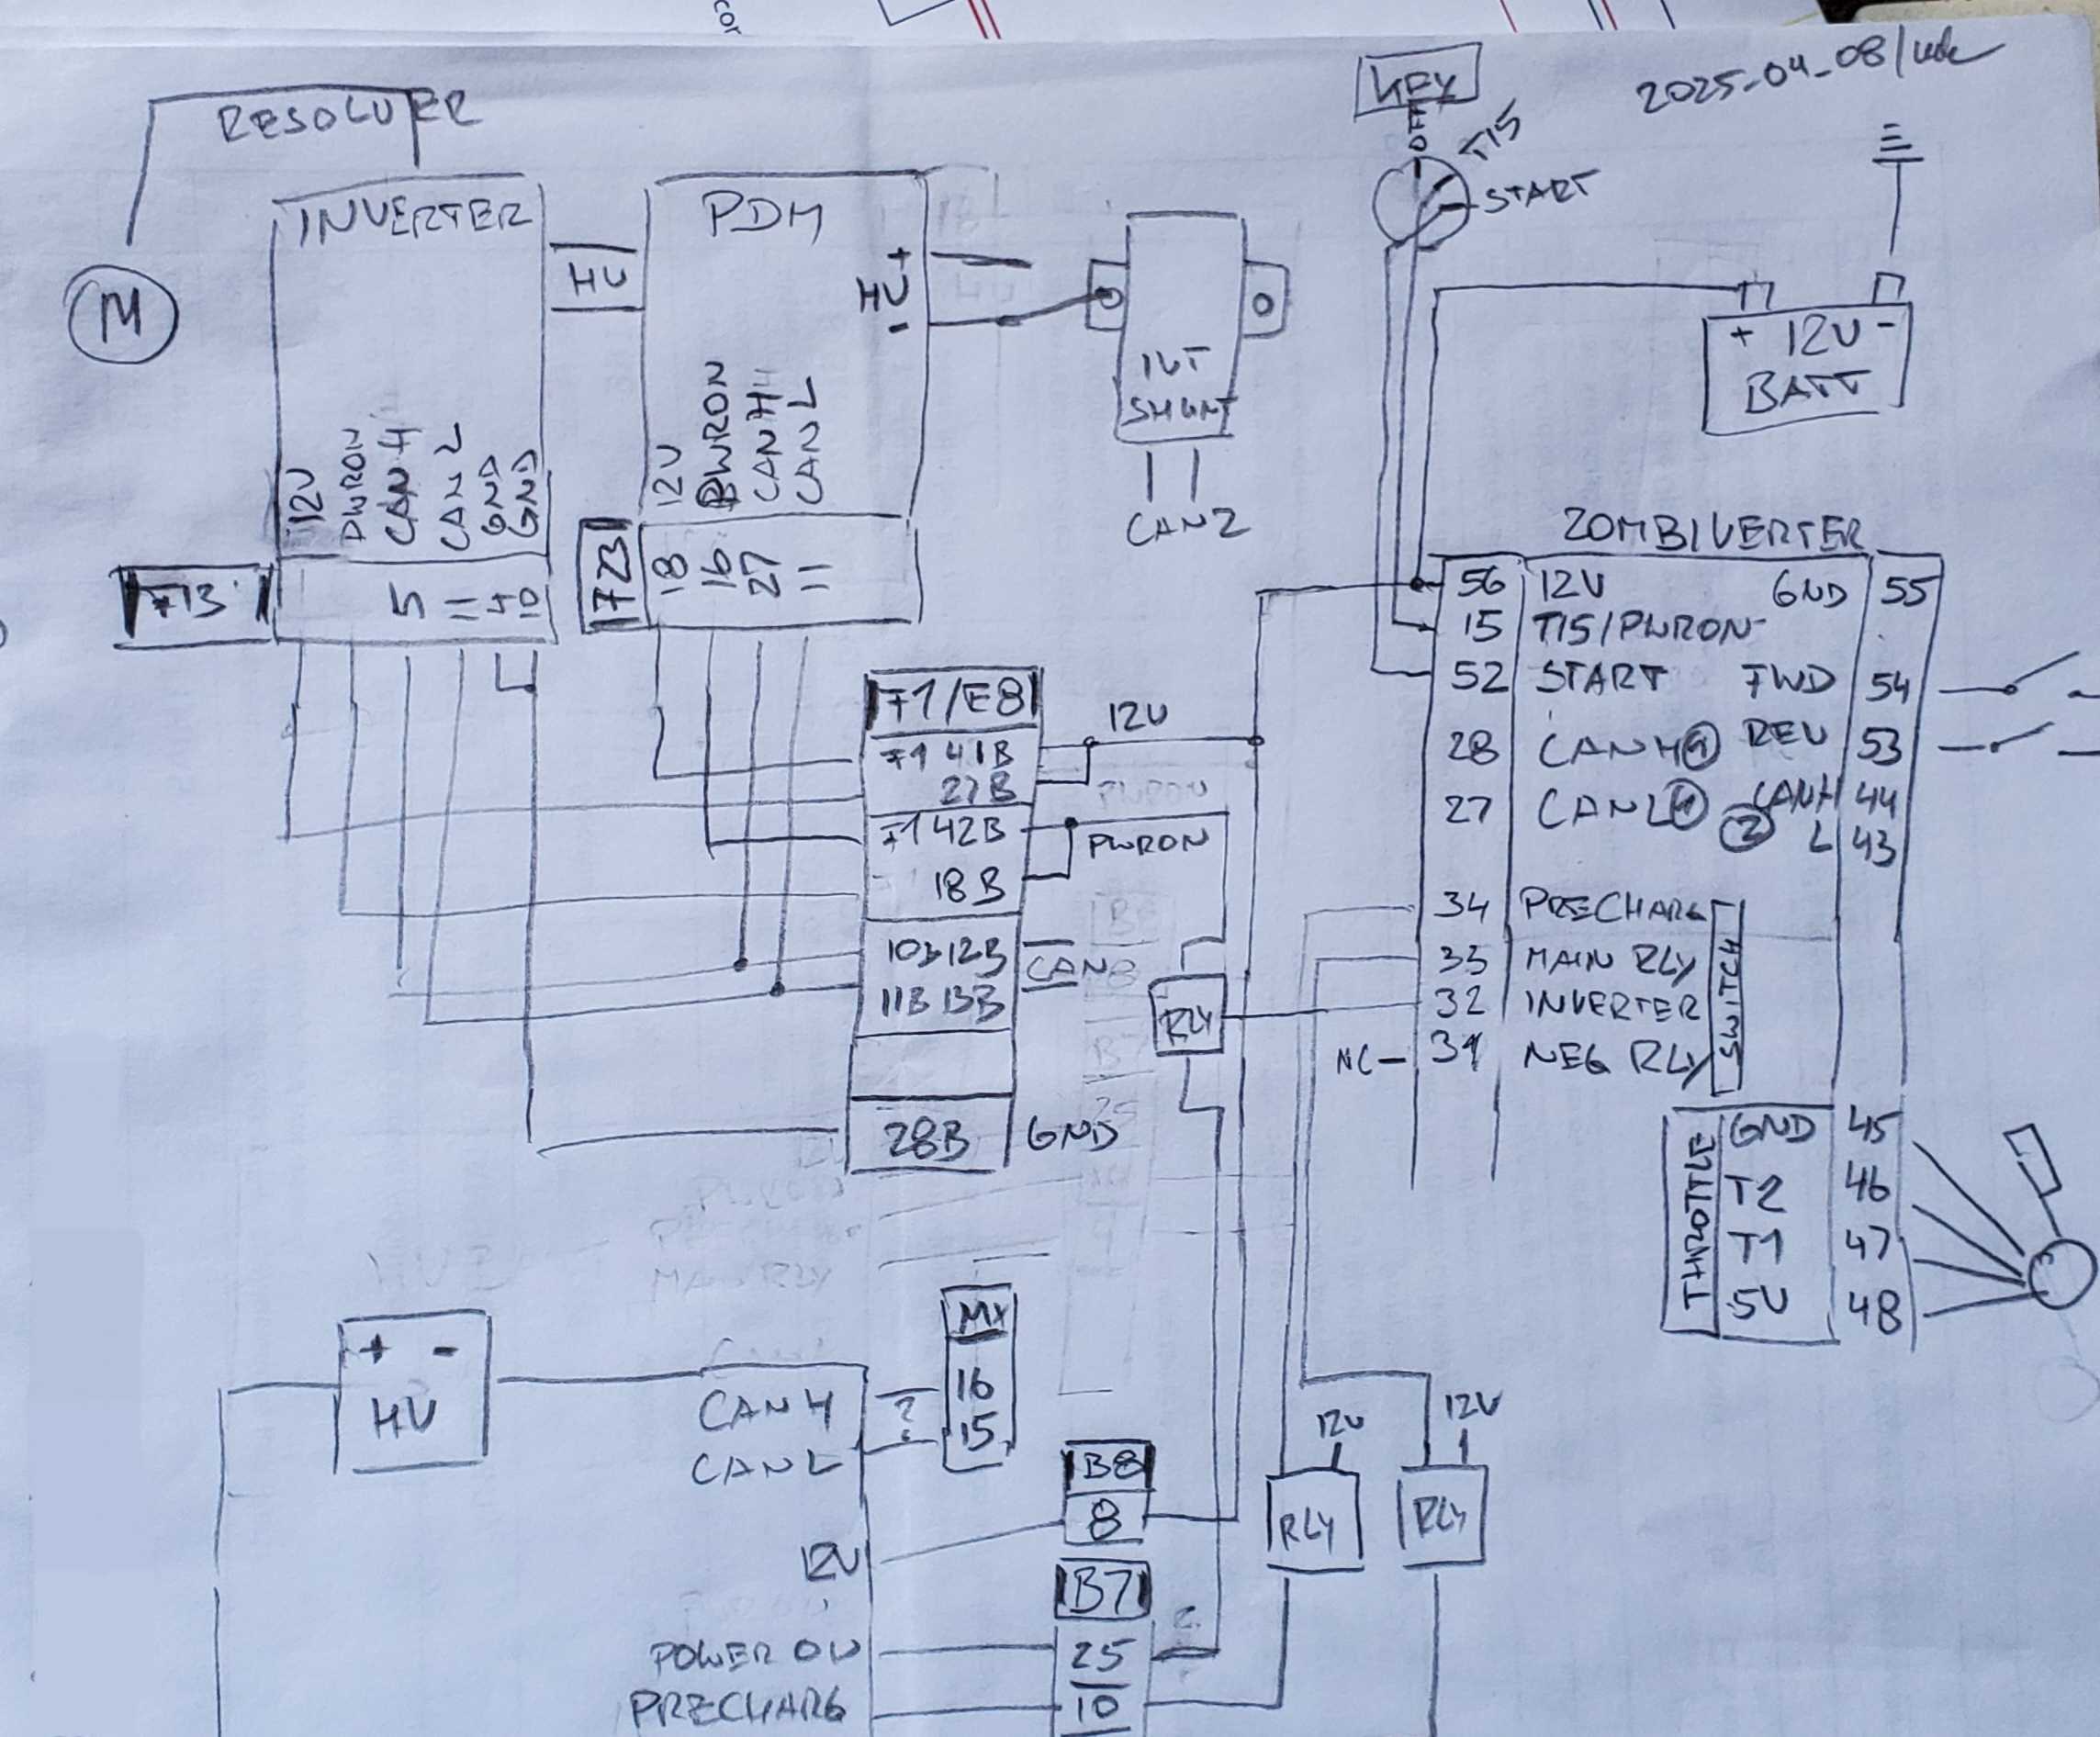 2025-04-08
KEY
OFF
T15
START
RESOLVER
INVERTER
PDM
HV
HV + -
M
+ 12V -
BATT
IVT
SHUNT
CAN2
12V
PWRON
CAN H
CAN L
GND
GND
12V
PWRON
CAN H
CAN L
F13
5
11
4
10
F23
18
16
27
11
ZOMBIVERTER
56 12V GND 55
15 T15/PWRON
52 START FWD 54
28 CANH 1 REV 53
27 CANL 1 2 CANH 44
L 43
34 PRECHARG
33 MAIN RLY
32 INVERTER
NC - 31 NEG RLY
SWITCH
THROTTLE
GND 45
T2 46
T1 47
5V 48
F1/E8
F1 41B
27B
12V
F1 42B
PWRON
18B
10B 12B CAN
11B 13B
28B GND
RLY
PWRON
MAIN RLY
+ -
HV
MX
16
15
CAN H ?
CAN L
B8
8
12V
B7
POWER ON 25 ?
PRECHARG 10
12V
RLY
12V
RLY